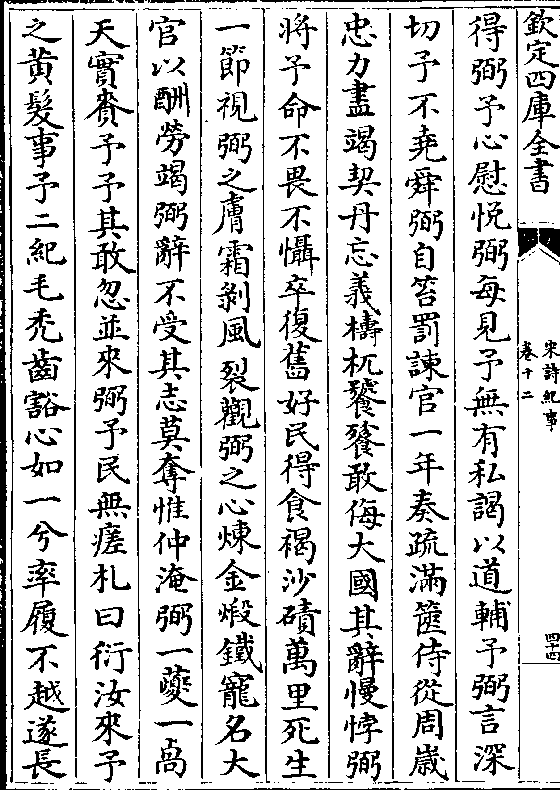 欽定四庫全書
宋詩紀事
卷十二
四十四
得弼予心慰悦弼每見予無有私謁以道輔予弼言深
切予不堯舜弼自笞罰諫官一年奏疏滿篋侍從周嵗
忠力盡竭契丹忘義檮杌饕餮敢侮大國其辭慢悖弼
將予命不畏不懾卒復舊好民得食褐沙磧萬里死生
一節視弼之膚霜剝風裂觀弼之心煉金煅鐵寵名大
官以酬勞竭弼辭不受其志莫奪惟仲淹弼一夔一卨
天實賚予予其敢忽並來弼予民無瘥札曰衍汝來予
之黄髮事予二紀毛秃齒豁心如一兮率履不越遂長